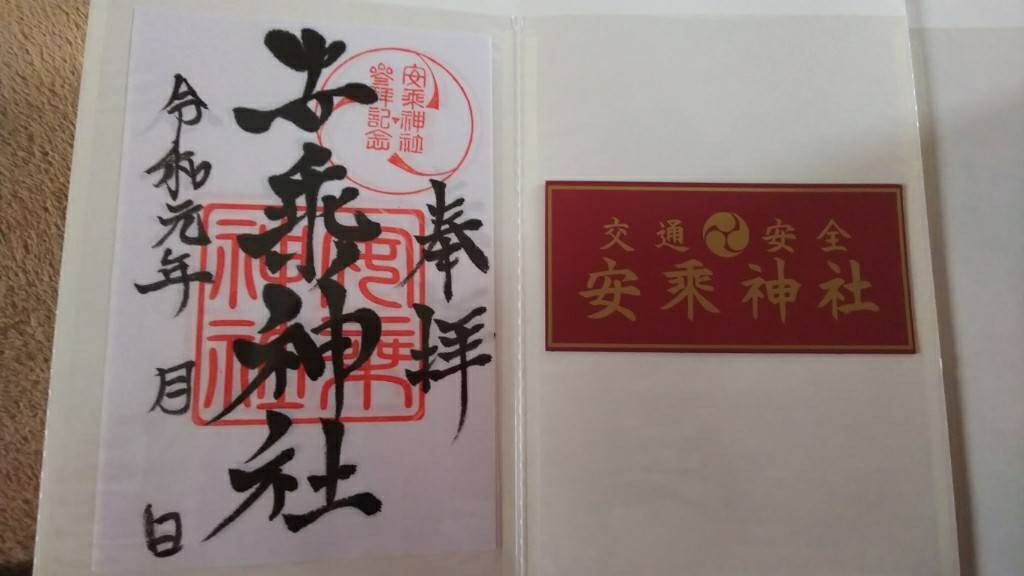 奉拝
安乗神社
参拝記念
安乗神社
安乗
神社
令和元年 月 日
交通 安全
安乗神社